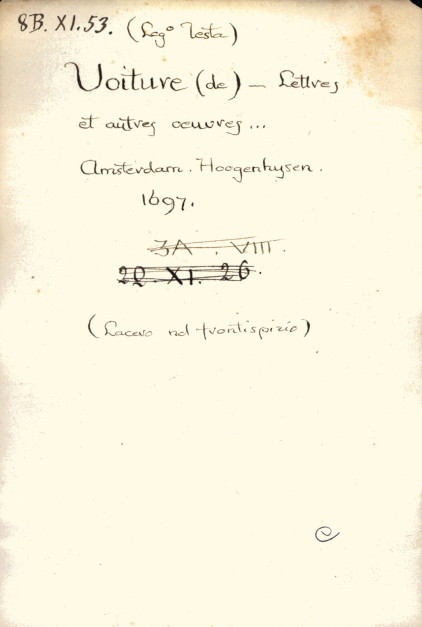 8B. XI. 53. (Leg° Testa)
Voiture (de) — Lettres
et autres oeuvres...
Amsterdam. Hoogenhuysen.
1697.
3A . VIII.
2Q. XI. 26.
(Lacero nel frontispizio)